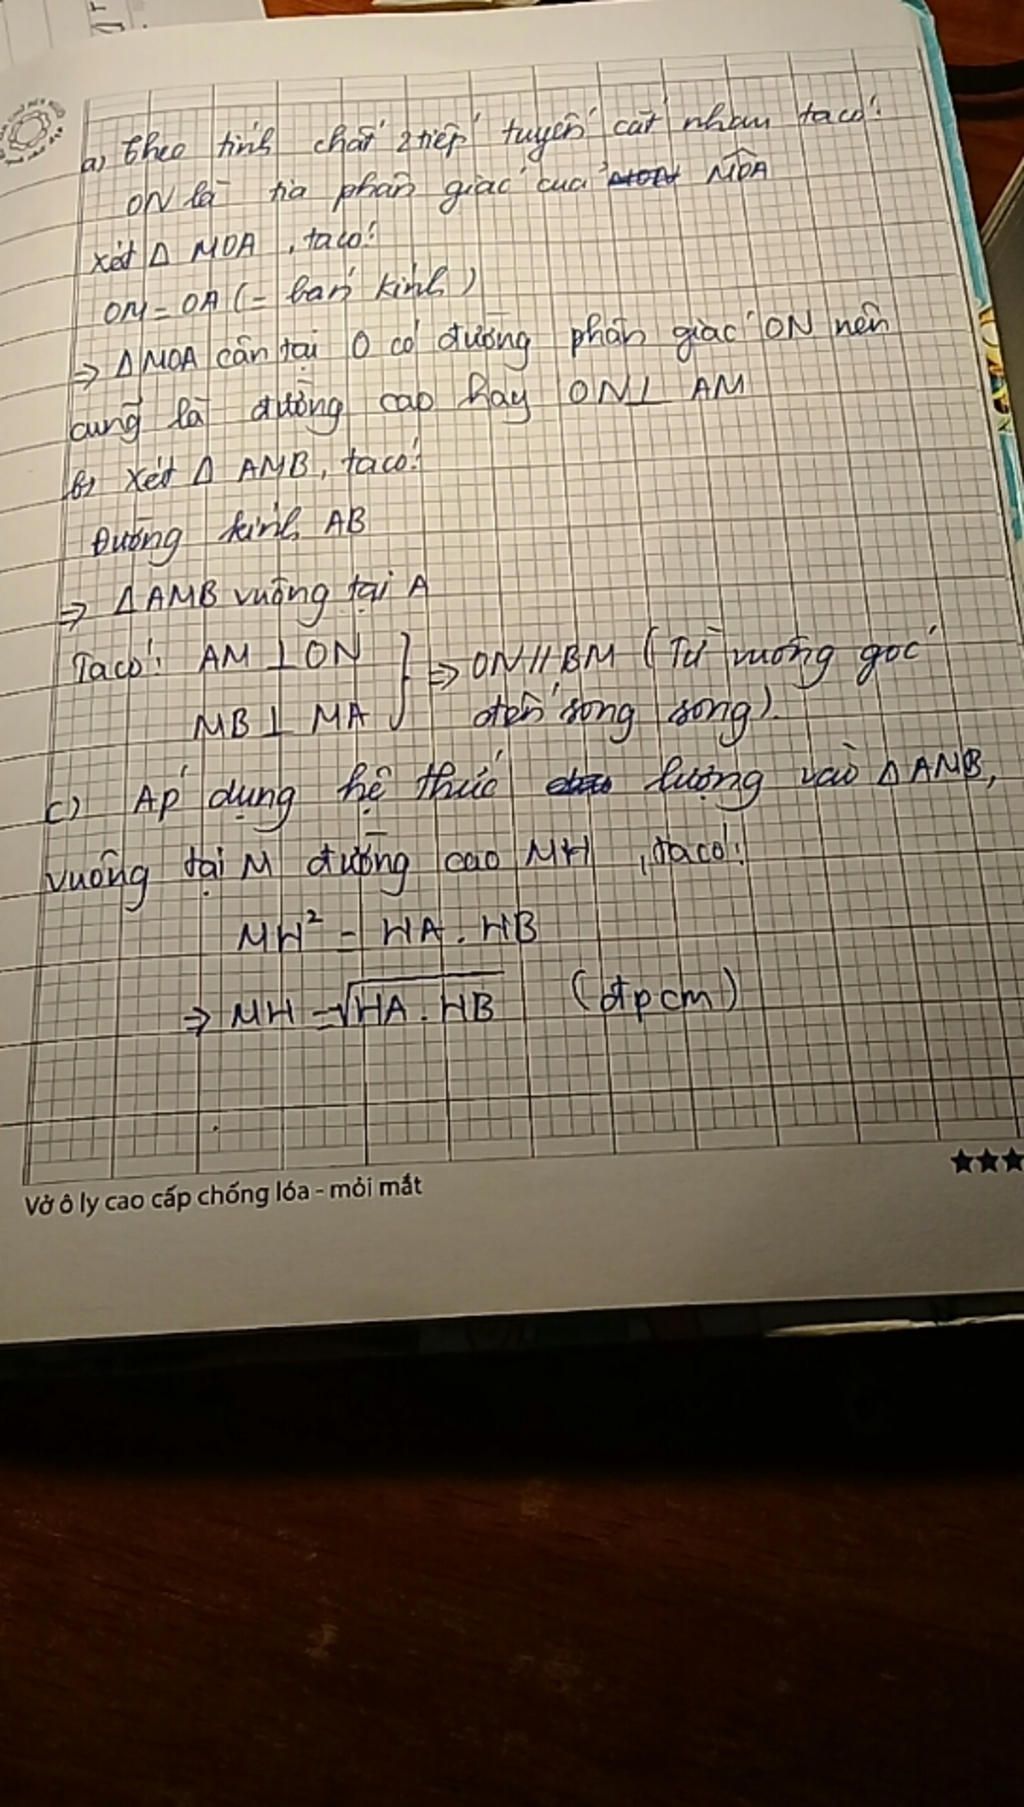 a) Theo tính chất 2 tiếp tuyến cắt nhau ta có:
ON là tia phân giác của MOA
Xét Δ MOA, ta có:
OM = OA (= bán kính)
⇒ Δ MOA cân tại O có đường phân giác ON nên
cũng là đường cao hay ON ⊥ AM
b) Xét Δ AMB, ta có:
Đường kính AB
⇒ Δ AMB vuông tại A
Ta có: AM ⊥ ON } ⇒ ON // BM (Từ vuông góc
MB ⊥ MA đến song song).
c) Áp dụng hệ thức lượng vào Δ AMB,
vuông tại M đường cao MH, ta có:
MH² = HA . HB
⇒ MH = √HA . HB (đpcm)
Vở ô ly cao cấp chống lóa - mỏi mắt